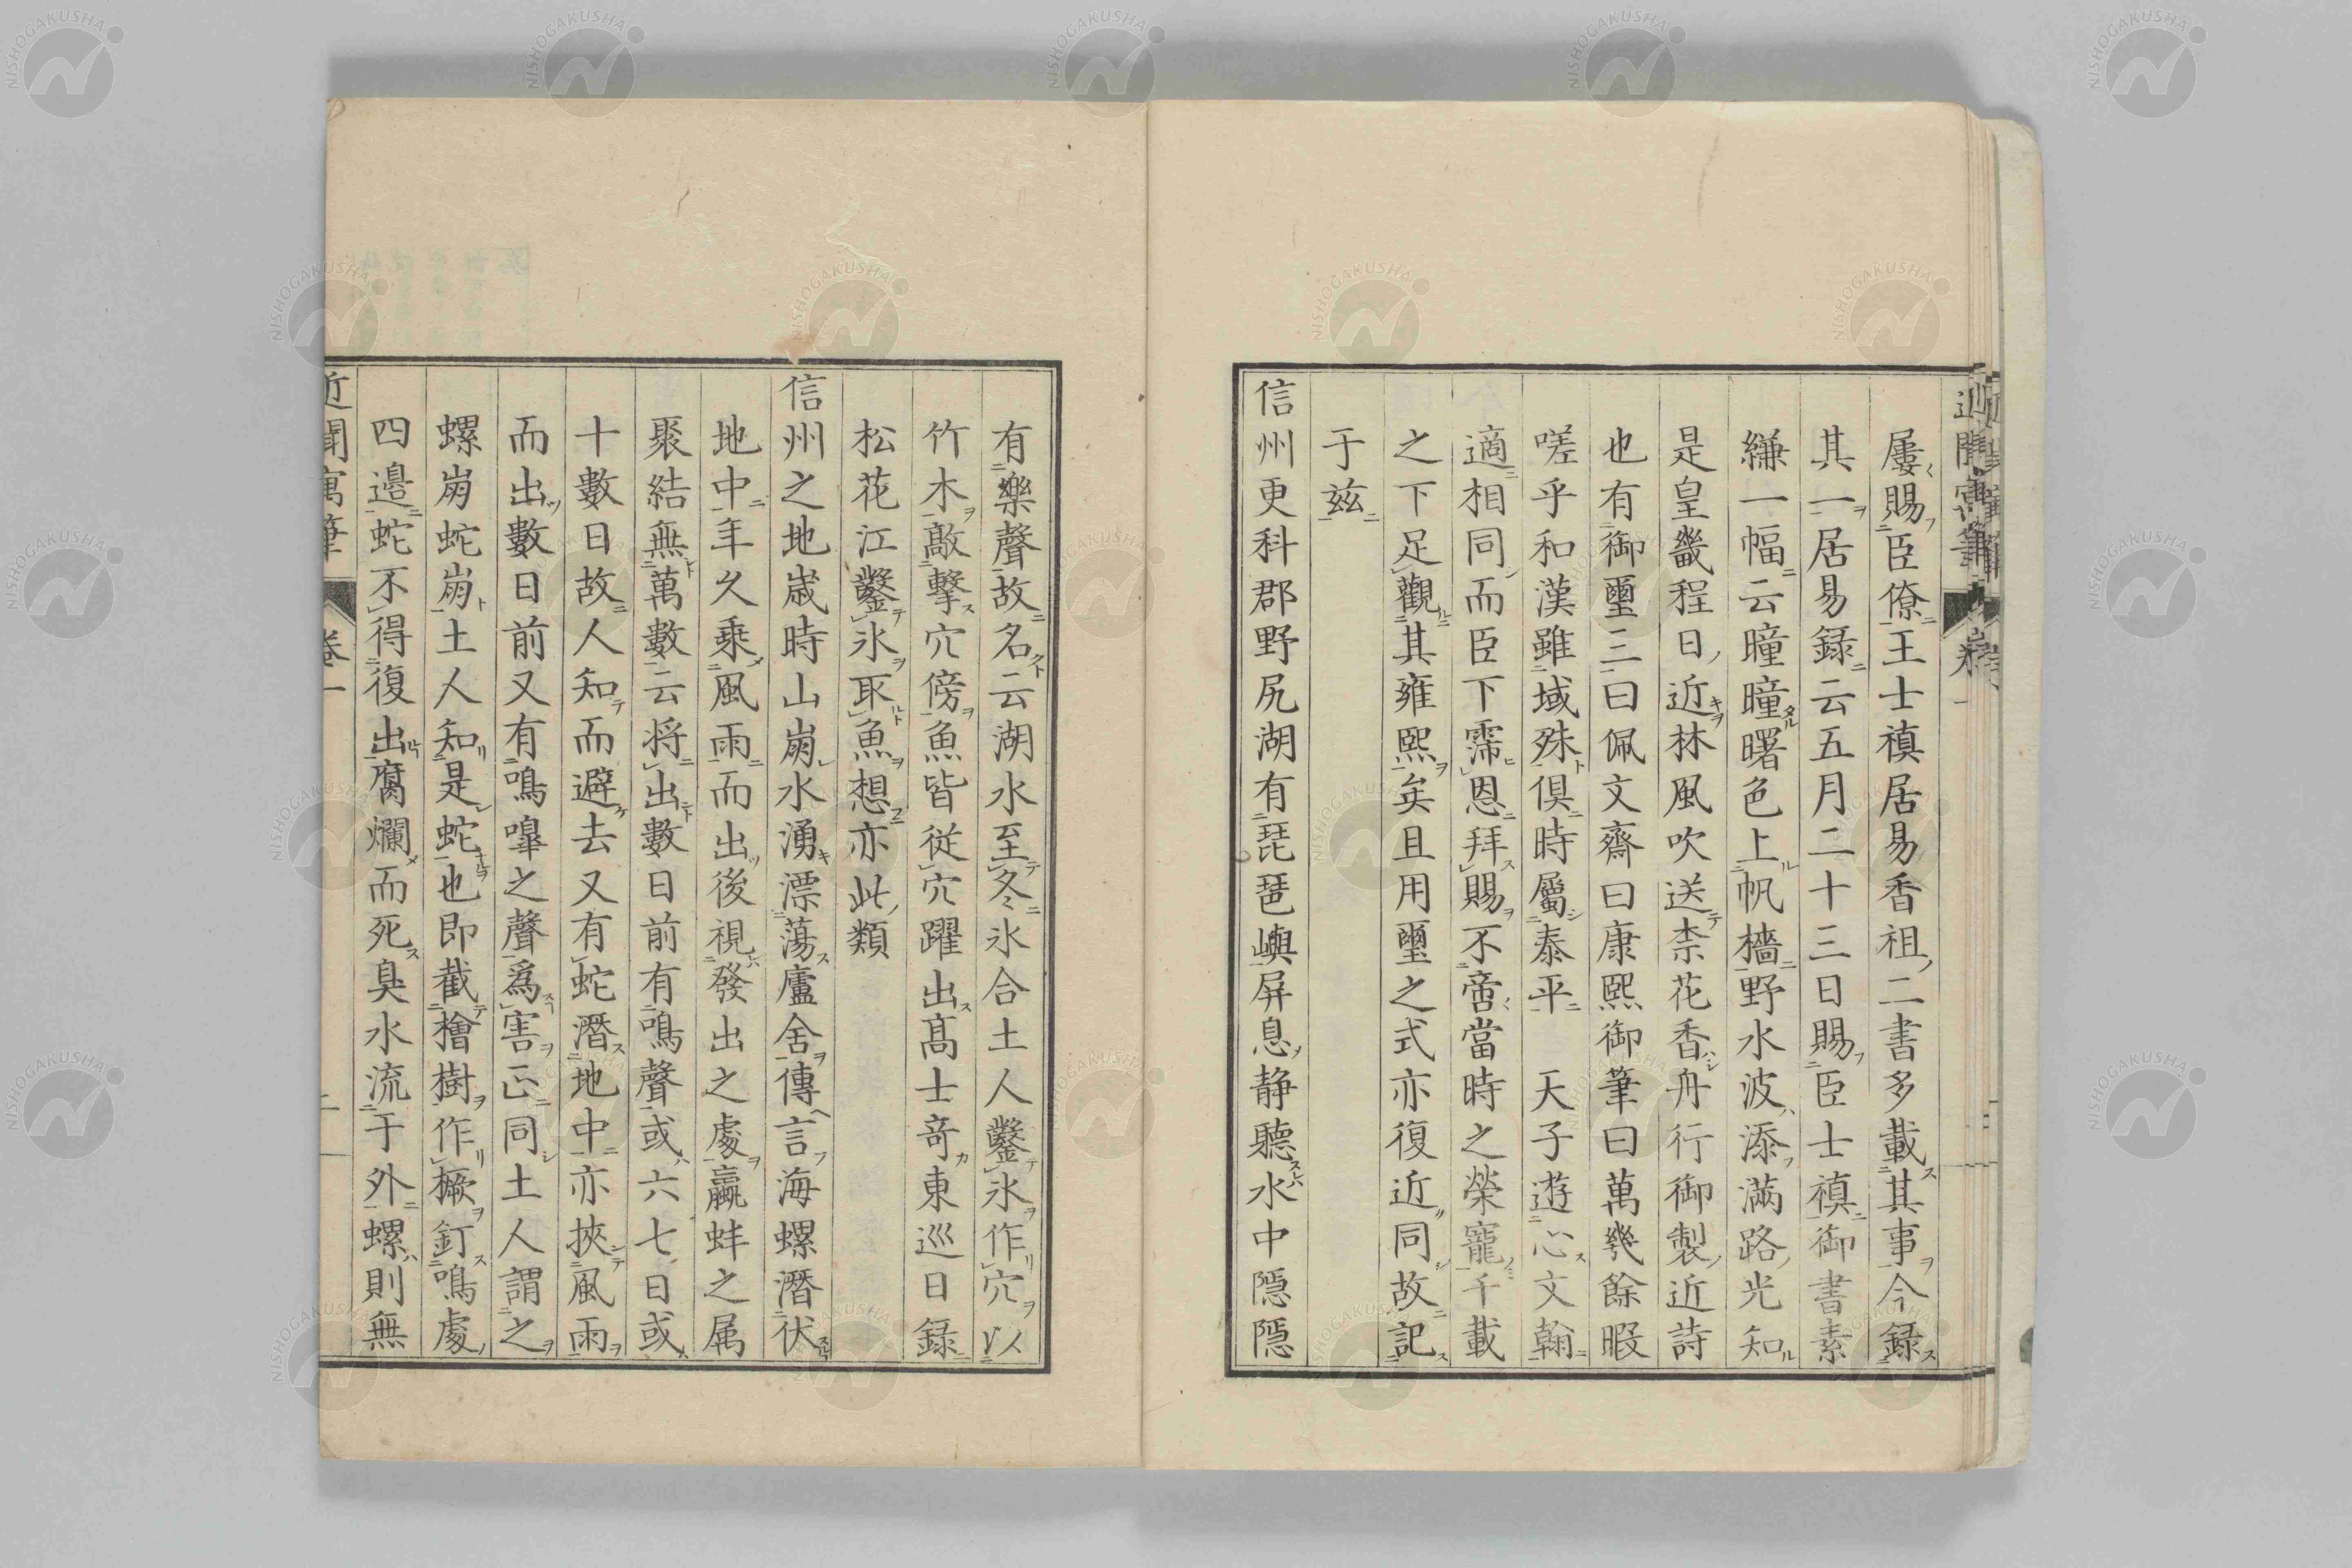 屢賜臣僚王士禛居易香祖二書多載其事今録
其一居易録云五月二十三日賜臣士禛御書素
縑一幅云曈曈曙色上帆檣野水波添滿路光知
是皇畿程日近林風吹送柰花香舟行御製近詩
也有御璽三曰佩文齋曰康熙御筆曰萬幾餘暇
嗟乎和漢雖域殊俱時屬泰平　天子遊心文翰
適相同而臣下霈恩拜賜不啻當時之榮寵千載
之下足觀其雍熙矣且用璽之式亦復近同故記
于玆
信州更科郡野尻湖有琵琶嶼屏息静聽水中隠隠
有樂聲故名云湖水至冬氷合土人鑿氷作穴以
竹木敲擊穴傍魚皆從穴躍出髙士竒東巡日録
松花江鑿氷取魚想亦此類
信州之地歳時山崩水湧漂蕩廬舍傳言海螺潛伏
地中年久乗風雨而出後視發出之處蠃蚌之属
聚結無萬數云将出數日前有鳴聲或六七日或
十數日故人知而避去又有蛇潛地中亦挾風雨
而出數日前又有鳴嘷之聲爲害正同土人謂之
螺崩蛇崩土人知是蛇也即截檜樹作橛釘鳴處
四邉蛇不得復出腐爛而死臭水流于外螺則無
近聞寓筆　卷一　二